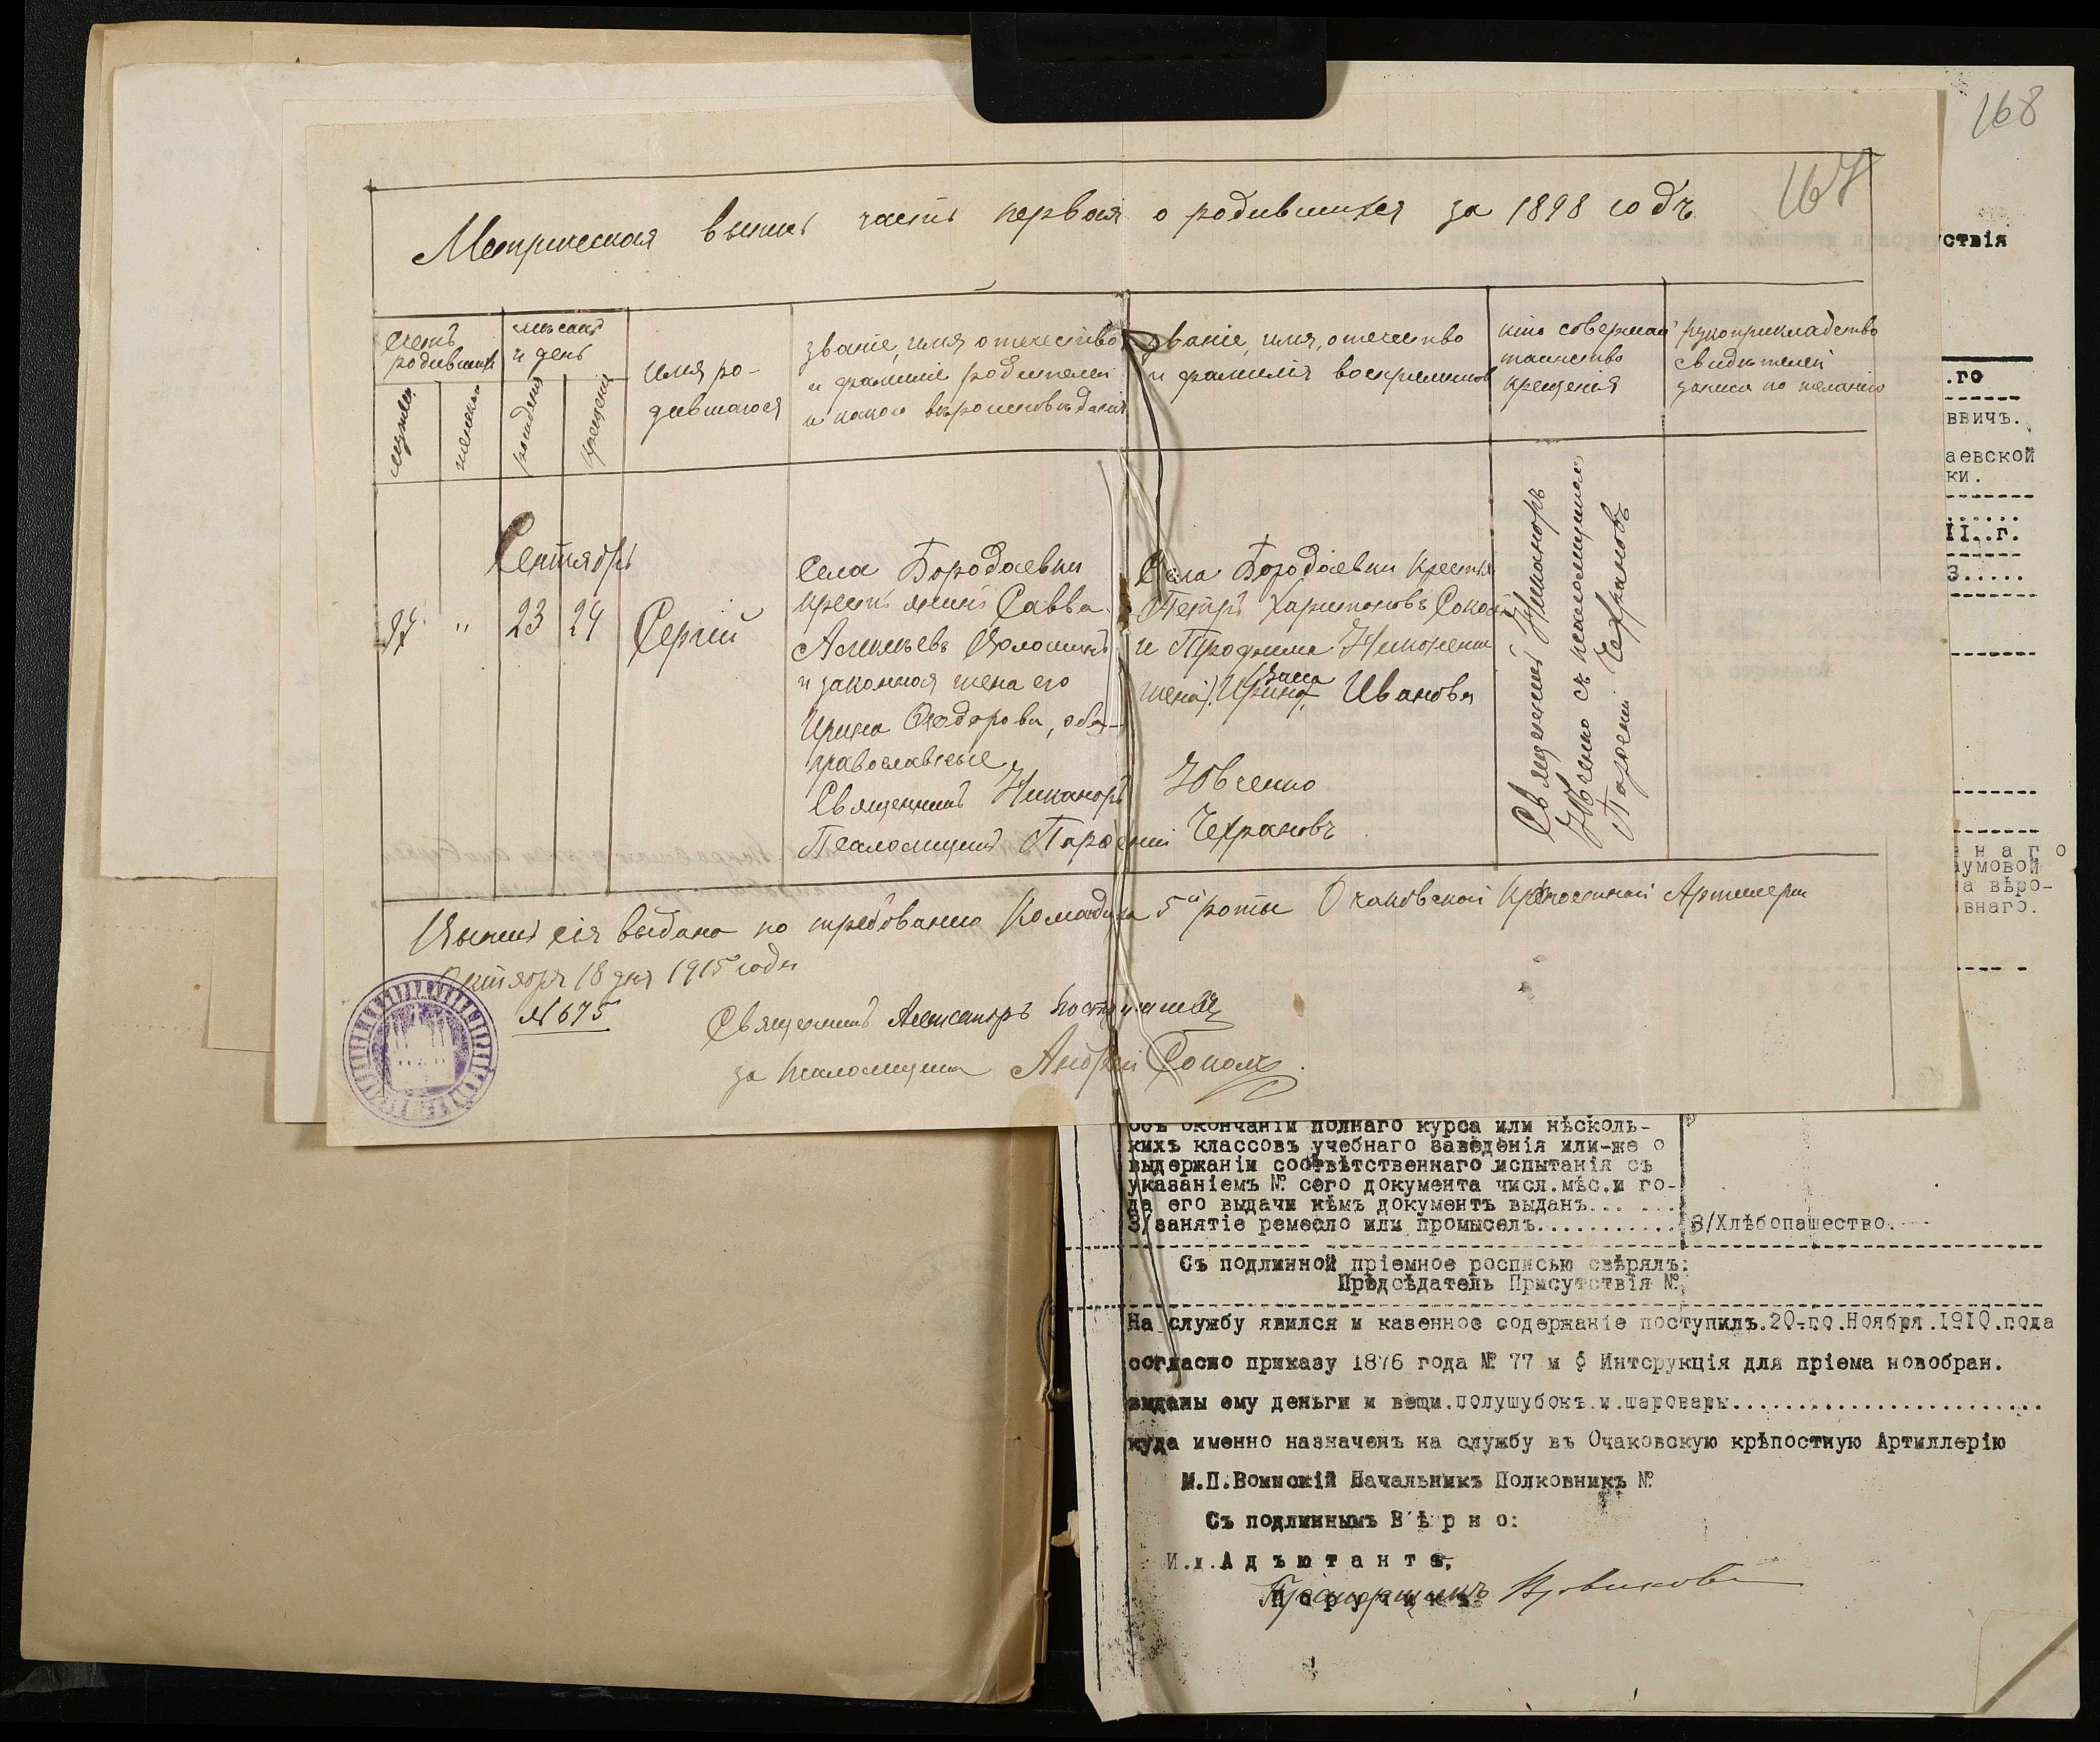 168
167
Метрическая выпись часть первая о родившихся за 1898 годъ
счетъ родившихся
мужеска
женска
мѣсяцъ и день
рожденія
крещенія
имя ро-
дившагося
званіе, имя отечество
и фамилія родителей
и какого вѣроисповѣданія
Званіе, имя, отечество
и фамилія воспріемниковъ
кто совершалъ
таинство
крещенія
рукоприкладство
свидѣтелей
записи по желанію
Сентябрь
97
"
23
24
Сергій
Села Бородаевки
крестьянинъ Савва
и законная жена его
Ирина Ѳеодорова, оба
православные.
Священникъ Никаноръ Ювченко
Псаломщикъ Парѳеній Чехрановъ
Села Бородаевки крестья.
Петръ Харитоновъ Соколъ
и
жена) Ирина Иванова
Священникъ Никаноръ
Ювченко съ псаломщикомъ
Парѳені Чехрановъ
Выпись сія выдана по требованію Командира 5й роты Очаковской Крѣпостной Артилеріи
Октября 18 дня 1915 года
№ 675
Священникъ Александръ
за псаломщика Андрей Соколъ
ствія
.го
ввичъ.
аевской
ки.
II..г.
3.....
н а г о
умовой
а вѣро-
внаго.
объ окончаніи полнаго курса или нѣсколь-
кихъ классовъ учебнаго заведенія или-же о
выдержаніи соотвѣтственнаго испытанія съ
указаніемъ № сего документа числ.мѣс.и го-
да его выдачи кѣмъ документъ выданъ... ...
3/занятіе ремесло или промыселъ............ 3/Хлѣбопашество.
Съ подлинной пріемное росписью свѣрялъ:
Предсѣдатель Присутствія №
На службу явился и казенное содержаніе поступилъ.20-го.Ноября.1910.года
согласно приказу 1876 года № 77 и § Интсрукція для пріема новобран.
выданы ему деньги и вещи.полушубокъ.и.шаровары........................
куда именно назначенъ на службу въ Очаковскую крѣпостную Артиллерію
М.П.Воинскій Начальникъ Полковникъ №
Съ подлиннымъ В ѣ р н о:
И.д.А д ъ ю т а н т а,
П о р у ч и к ъ
Прапорщикъ Новиковъ